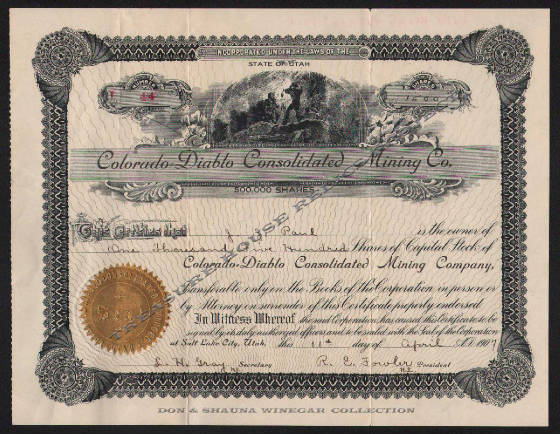 INCORPORATED UNDER THE LAWS OF THE
STATE OF UTAH
44
1500
Colorado-Diablo Consolidated Mining Co.
500,000 SHARES
This Certifies that J Paul is the owner of
One Thousand Five Hundred Shares of Capital Stock of
Colorado-Diablo Consolidated Mining Company,
transferable only on the Books of the Corporation in person or
by Attorney on surrender of this Certificate properly endorsed
In Witness Whereof the said Corporation has caused this Certificate to be
signed by its duly authorized officers and to be sealed with the Seal of the Corporation
at Salt Lake City, Utah, this 11th day of April A.D. 1907
L. H. Gray Secretary R. E. Fowler President
DON & SHAUNA WINEGAR COLLECTION